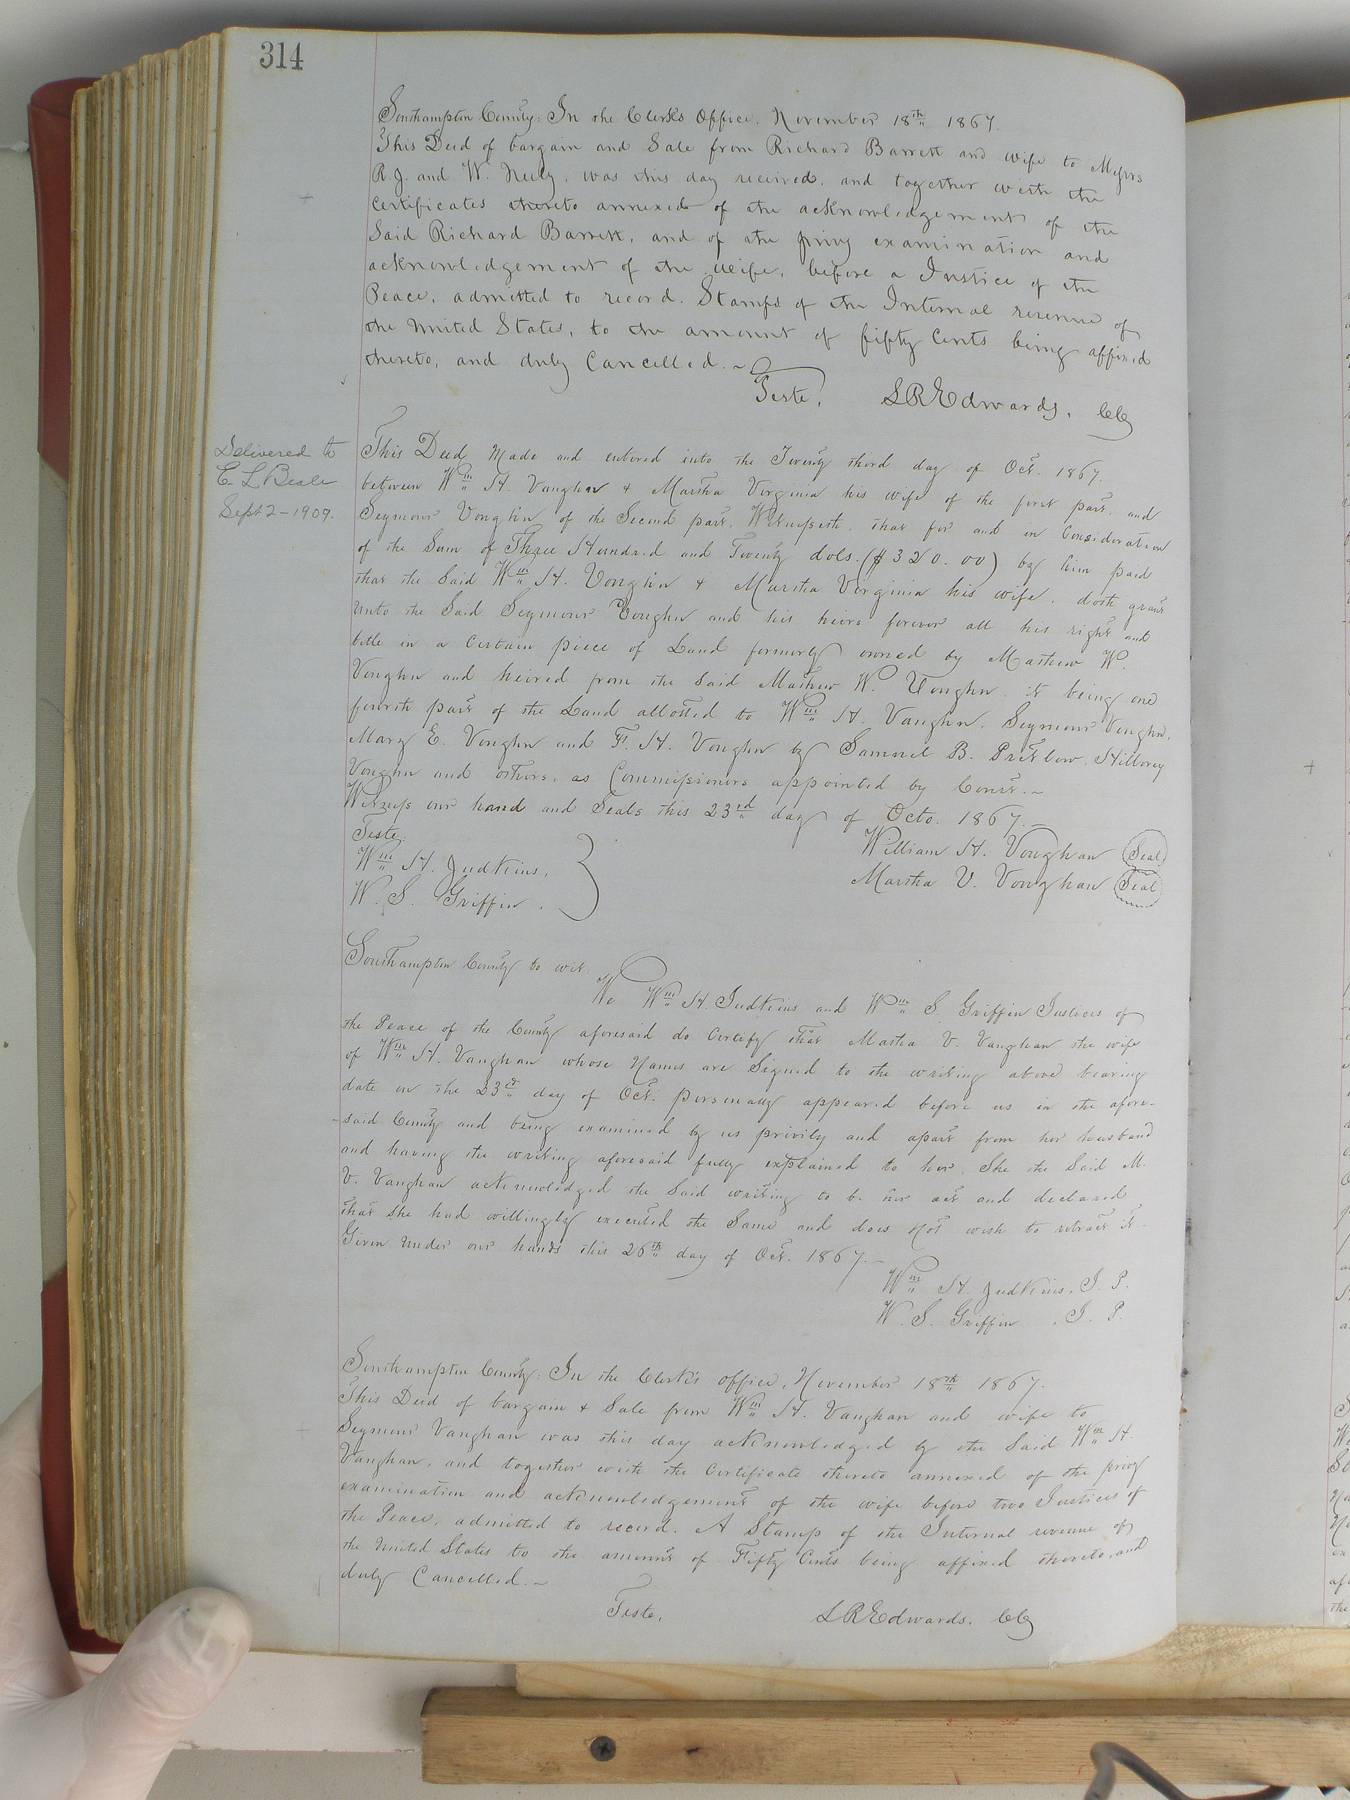 314
Southampton County: In the Clerk's Office, November 18th 1867.
This Deed of bargain and Sale from Richard Barrett and wife to Messrs
R. J. and W. Neely, was this day received, and together with the
certificates thereto annexed of the acknowledgement of the
Said Richard Barrett, and of the privy examination and
acknowledgement of the wife, before a Justice of the
Peace, admitted to record. Stamps of the Internal revenue of
the United States, to the amount of fifty Cents being affixed
thereto, and duly Cancelled.~
Teste, LREdwards, CC
Delivered to
E. L. Beale
Sept 2-1909.
This Deed Made and entered into the Twenty third day of Oct. 1867,
between Wm H. Vaughn & Martha Virginia his wife of the first part, and
Seymour Vaughn of the Second part, Witnesseth, that for and in Consideration
of the Sum of Three Hundred and Twenty dols. ($320.00) by him paid
that the Said Wm H. Vaughn & Martha Virginia his wife, doth grant
unto the Said Seymour Vaughn and his heirs forever all his right and
title in a Certain piece of Land formerly owned by Mathew W.
Vaughn and heired from the Said Mathew W. Vaughn it being one
fourth part of the Land allotted to Wm H. Vaughn, Seymour Vaughn,
Mary E. Vaughn and F. H. Vaughn by Samuel B. Pretlow, Hillory
Vaughn and others, as Commissioners appointed by Court.~
Witness our hand and Seals this 23rd day of Octo. 1867.~
Teste,
William H. Vaughan (Seal)
Wm H. Judkins,
Martha V. Vaughan (Seal)
W. S. Griffin.
Southampton County to wit.
We Wm H. Judkins and Wm S. Griffin Justices of
the Peace of the County aforesaid do Certify that Martha V. Vaughan the wife
of Wm H. Vaughan whose Names are Signed to the writing above bearing
date on the 23rd day of Oct. personally appeared before us in the afore-
-said County and being examined by us privily and apart from her husband
and having the writing aforesaid fully explained to her, She the Said M.
V. Vaughan acknowledged the Said writing to be her act and declared
that She had willingly executed the Same and does not wish to retract it.
Given Under our hands this 26th day of Oct. 1867.~
Wm H. Judkins, J. P.
W. S. Griffin, J. P.
Southampton County: In the Clerk's office, November 18th 1867.
This Deed of bargain & Sale from Wm H. Vaughan and wife to
Seymour Vaughan was this day acknowledged by the Said Wm H.
Vaughan, and together with the Certificate thereto annexed of the privy
examination and acknowledgement of the wife before two Justices of
the Peace, admitted to record. A Stamp of the Internal revenue of
the United States to the amount of Fifty Cents being affixed thereto, and
duly Cancelled.~
Teste, LREdwards, CC